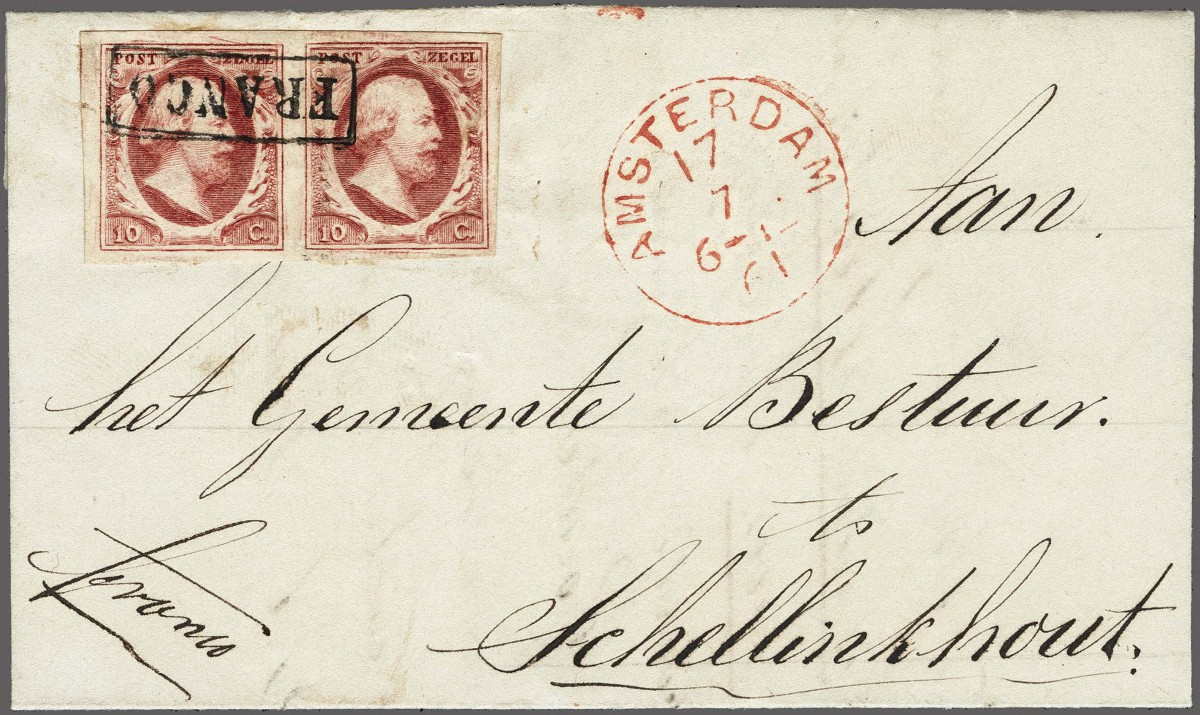 POST ZEGEL POST ZEGEL
FRANCO
10 C. 10 C.
AMSTERDAM
17
7
6-1
61
Aan.
het Gemeente Bestuur.
te
Schellinkhout.
Franco